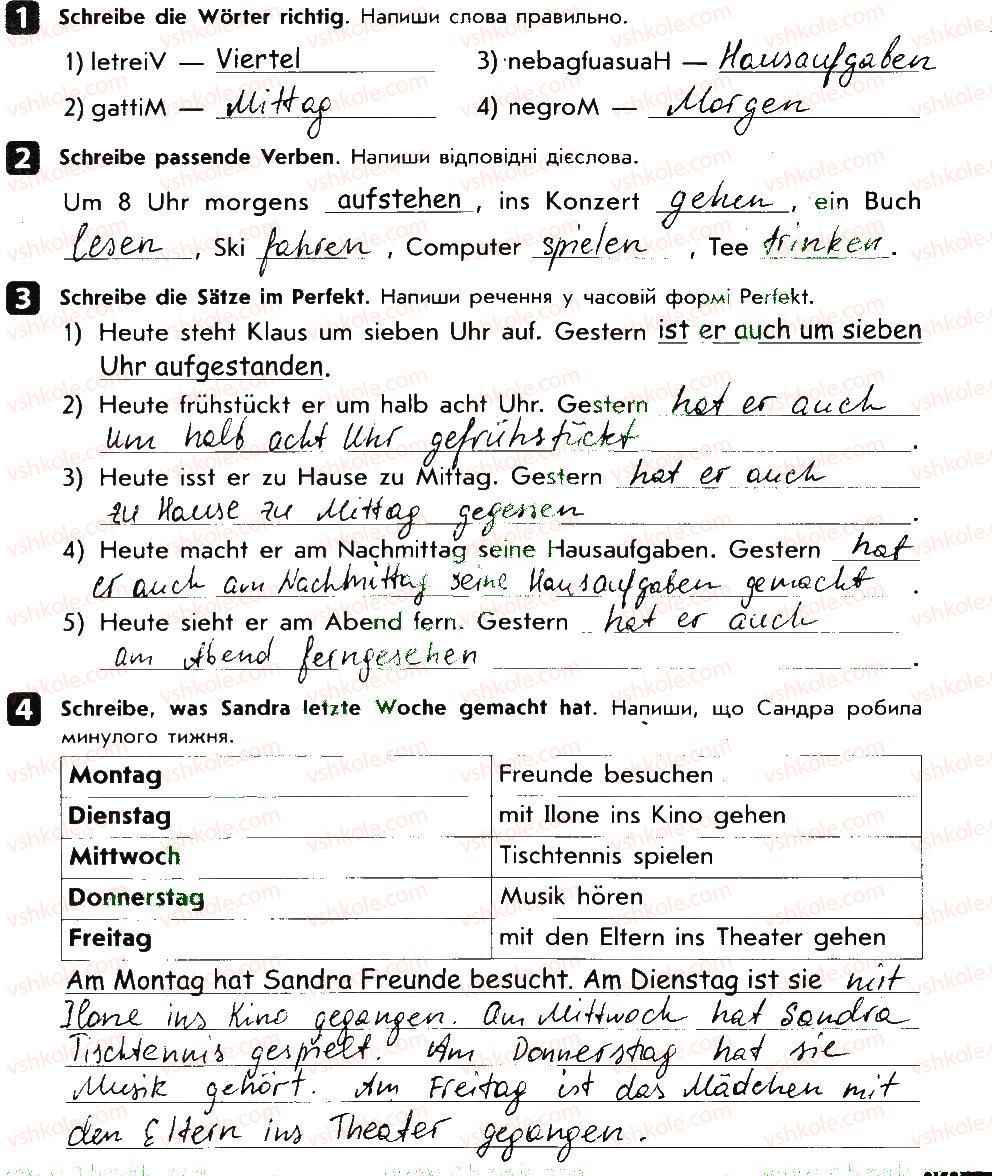 1 Schreibe die Wörter richtig. Напиши слова правильно.
1) letreiV — Viertel 3) nebagfuasuaH — Hausaufgaben
2) gattiM — Mittag 4) negroM — Morgen
2 Schreibe passende Verben. Напиши відповідні дієслова.
Um 8 Uhr morgens aufstehen, ins Konzert gehen, ein Buch
lesen, Ski fahren, Computer spielen, Tee trinken.
3 Schreibe die Sätze im Perfekt. Напиши речення у часовій формі Perfekt.
1) Heute steht Klaus um sieben Uhr auf. Gestern ist er auch um sieben
Uhr aufgestanden.
2) Heute frühstückt er um halb acht Uhr. Gestern hat er auch
um halb acht Uhr gefrühstückt.
3) Heute isst er zu Hause zu Mittag. Gestern hat er auch
zu Hause zu Mittag gegessen.
4) Heute macht er am Nachmittag seine Hausaufgaben. Gestern hat
er auch am Nachmittag seine Hausaufgaben gemacht.
5) Heute sieht er am Abend fern. Gestern hat er auch
am Abend ferngesehen.
4 Schreibe, was Sandra letzte Woche gemacht hat. Напиши, що Сандра робила
минулого тижня.
Montag Freunde besuchen
Dienstag mit Ilone ins Kino gehen
Mittwoch Tischtennis spielen
Donnerstag Musik hören
Freitag mit den Eltern ins Theater gehen
Am Montag hat Sandra Freunde besucht. Am Dienstag ist sie mit
Ilone ins Kino gegangen. Am Mittwoch hat Sandra
Tischtennis gespielt. Am Donnerstag hat sie
Musik gehört. Am Freitag ist das Mädchen mit
den Eltern ins Theater gegangen.